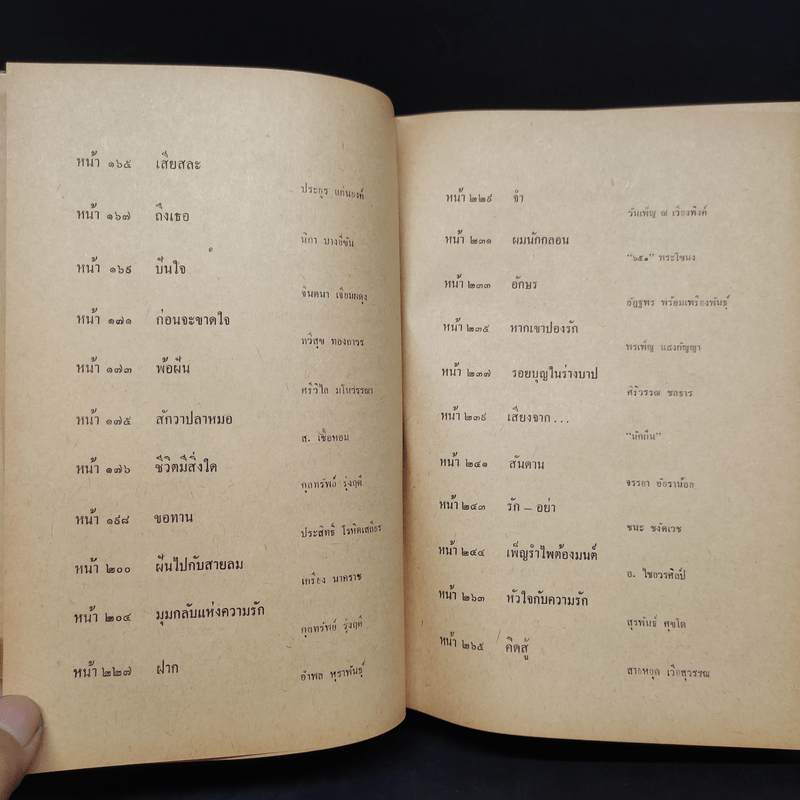 หน้า ๑๖๕ เสียสละ
ประกูร แก่นยงค์
หน้า ๑๖๗ ถึงเธอ
นิภา บางยี่ขัน
หน้า ๑๖๙ ปืนใจ
จินตนา เจียมผดุง
หน้า ๑๗๑ ก่อนจะขาดใจ
ทวีสุข ทองถาวร
หน้า ๑๗๓ พ้อฝัน
ศรีวิไล มโนวรรณา
หน้า ๑๗๕ สักวาปลาหมอ
ส. เชื้อหอม
หน้า ๑๗๖ ชีวิตมีสิ่งใด
กุลทรัพย์ รุ่งฤดี
หน้า ๑๙๘ ขอทาน
ประสิทธิ์ โรหิตเสถียร
หน้า ๒๐๐ ฝันไปกับสายลม
เกรียง นาคราช
หน้า ๒๐๔ มุมกลับแห่งความรัก
กุลทรัพย์ รุ่งฤดี
หน้า ๒๒๗ ฝาก
อำพล หุราพันธุ์
หน้า ๒๒๙ จำ
วันเพ็ญ ณ เวียงพิงค์
หน้า ๒๓๑ ผมนักกลอน
“๖๕๑” พระโขนง
หน้า ๒๓๓ อักษร
อัฎฐพร พร้อมเพรียงพันธุ์
หน้า ๒๓๕ หากเขาปองรัก
พรเพ็ญ แสงกัญญา
หน้า ๒๓๗ รอยบุญในร่างบาป
ศิริวรรณ ชลธาร
หน้า ๒๓๙ เสียงจาก ...
“นักฝัน”
หน้า ๒๔๑ สันดาน
จรรยา อัยราน้อย
หน้า ๒๔๓ รัก – อย่า
ชนะ ชงัดเวช
หน้า ๒๔๔ เพ็ญรำไพต้องมนต์
อ. ไชยวรศิลป์
หน้า ๒๖๓ หัวใจกับความรัก
สุรพันธ์ ศุขโต
หน้า ๒๖๕ คิดสู้
สายหยุด เวียสุวรรณ